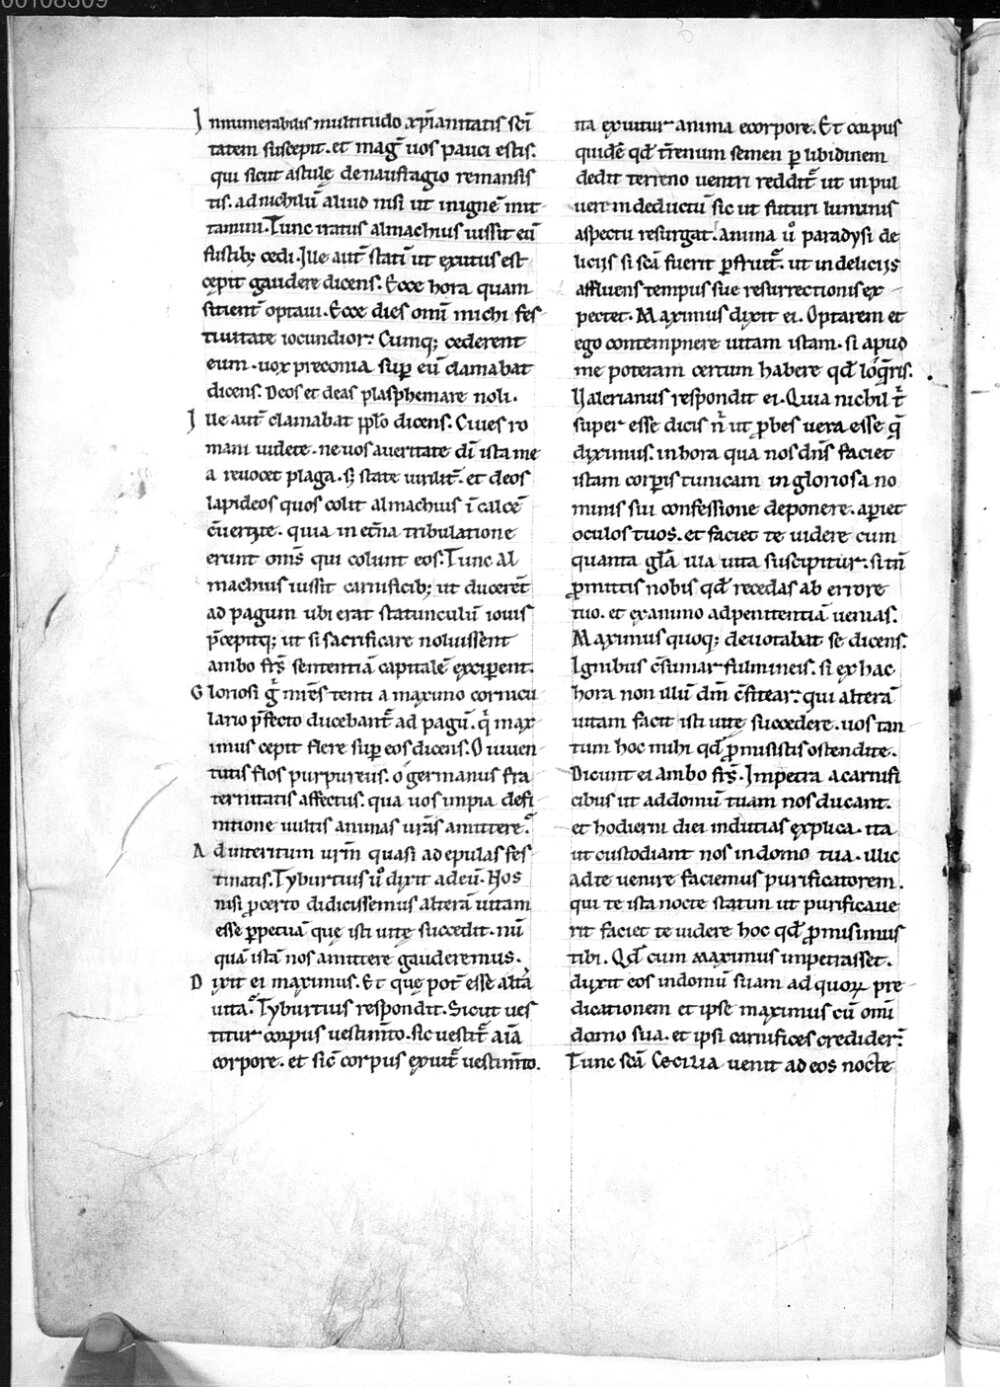 00108309
Innumerabilis multitudo xp̄ianitatis sc̄i
tatem suscepit. et mag̃ uos pauci estis.
qui sicut astulę denaufragio remansis
tis. adnichilū aliud nisi ut inignē mit
tamini. Tunc iratus almachius iussit eū
fustib; cedi. Ille aut̄ stati᷑ ut exutus est
cępit gaudere dicens. Ecce hora quam
sitient̄ optaui. Ecce dies om̄i michi fes
tiuitate iocundior. Cumq; cederent
eum. uox preconia sup̱ eū clamabat
dicens. Deos et deas plasphemare noli.
Ille aut̄ clamabat pp̱lo dicens. Ciues ro
mani uidete. ne uos aueritate dī ista me
a reuocet plaga. sꝫ state uirilit̄. et deos
lapideos quos colit almachius ī calcē
c̄uertite. quia in et̄na tribulatione
erunt om̄s qui colunt eos. Tunc al
machius iussit carnificib; ut ducerēt
ad pagum ubi erat statunculū iouis
p̄cepitq; ut si sacrificare noluissent
ambo fr̄s sententiā capitalē excip̱ent.
Gloriosi g̃ mr̄es tenti a maximo cornicu
lario p̄fecto ducebant̄ ad pagū. q̇ max
imus cepit flere sup̱ eos dicens. O iuuen
tutis flos purpureus. o germanus fra
ternitatis affectus. qua uos impia defi
nitione uultis animas ur̄as amittere.
Ad interitum ur̄m quasi ad epulas fes
tinatis. Tyburtius u᷒ dixit ad eū. Nos
nisi ꝓcerto didicissemus alterā uitam
esse ꝑpetuā quę isti uitę succedit. nū
quā istā nos amittere gauderemus.
Dixit ei maximus. Et quę pot̄ esse alt̄a
uita. Tyburtius respondit. Sicut ues
titur corpus uestim̄to. sic uestit̄ aīa
corpore. et sic̄ corpus exuit̄ uestim̄to.
ita exuitur anima ecorpore. Et corpus
quidē qd̄ t̄renum semen ꝑ libidinem
dedit terreno uentri reddit̄ ut in pul
uerem deductū sic ut futuri luminis
aspectu resurgat. anima u᷒ paradysi de
liciis si sc̄a fuerit ꝑfruit̄. ut in deliciis
affluens tempus sue resurrectionis ex
pectet. Maximus dixit ei. Optarem et
ego contempnere uitam istam. si apud
me poteram certum habere qd̄ loq̄ris.
Ualerianus respondit ei. Quia nichil t̄
super esse dicis n̄ ut ꝓbes uera esse q̄
diximus. in hora qua nos dn̄s faciet
istam corꝑis tunicam in gloriosa no
minis sui confessione deponere. aꝑiet
oculos tuos. et faciet te uidere cum
quanta gl̄a illa uita suscipitur. si tn̄
ꝓmittis nobis qd̄ recedas ab errore
tuo. et exanimo adpenitentiā uenias.
Maximus quoq; deuotabat se dicens.
Ignibus c̄sumar fulmineis. si ex hac
hora non illū dm̄ c̄fitear. qui alterā
uitam facit isti uitę succedere. uos tan
tum hoc mihi qd̄ ꝓmisistis ostendite.
Dicunt ei ambo fr̄s. Impetra a carnifi
cibus ut addomū tuam nos ducant.
et hodierni diei indutias explica. ita
ut custodiant nos indomo tua. illic
adte uenire faciemus purificatorem.
qui te ista nocte statim ut purificaue
rit faciet te uidere hoc qd̄ ꝓmisimus
tibi. Qd̄ cum maximus impetrasset.
duxit eos indomū suam ad quoꝝ pre
dicationem et ipse maximus cū om̄i
domo sua. et ipsi carnifices credider̄.
Tunc sc̄a Cecilia uenit ad eos nocte